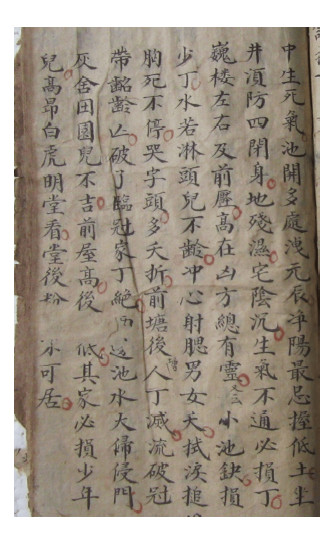 中生死氣池開多庭洩元辰孤陽最忌挖低土坐
井須防四閉身地殘濕宅陰沉生氣不通必損丁
巍楼左右及前壓高在凶方總有靈 小池缺損
少丁水若淋頭兒不齡冲心射腮男女夭拭淚搥
胸死不停哭字頭多夭折前塘後 人丁减流破冠
帶齠齡亡破了臨冠家丁絶 池水大歸侵門
灰舍田園兒不吉前屋高後 低其家必損少年
兒高昂白虎明堂看堂後 水可居